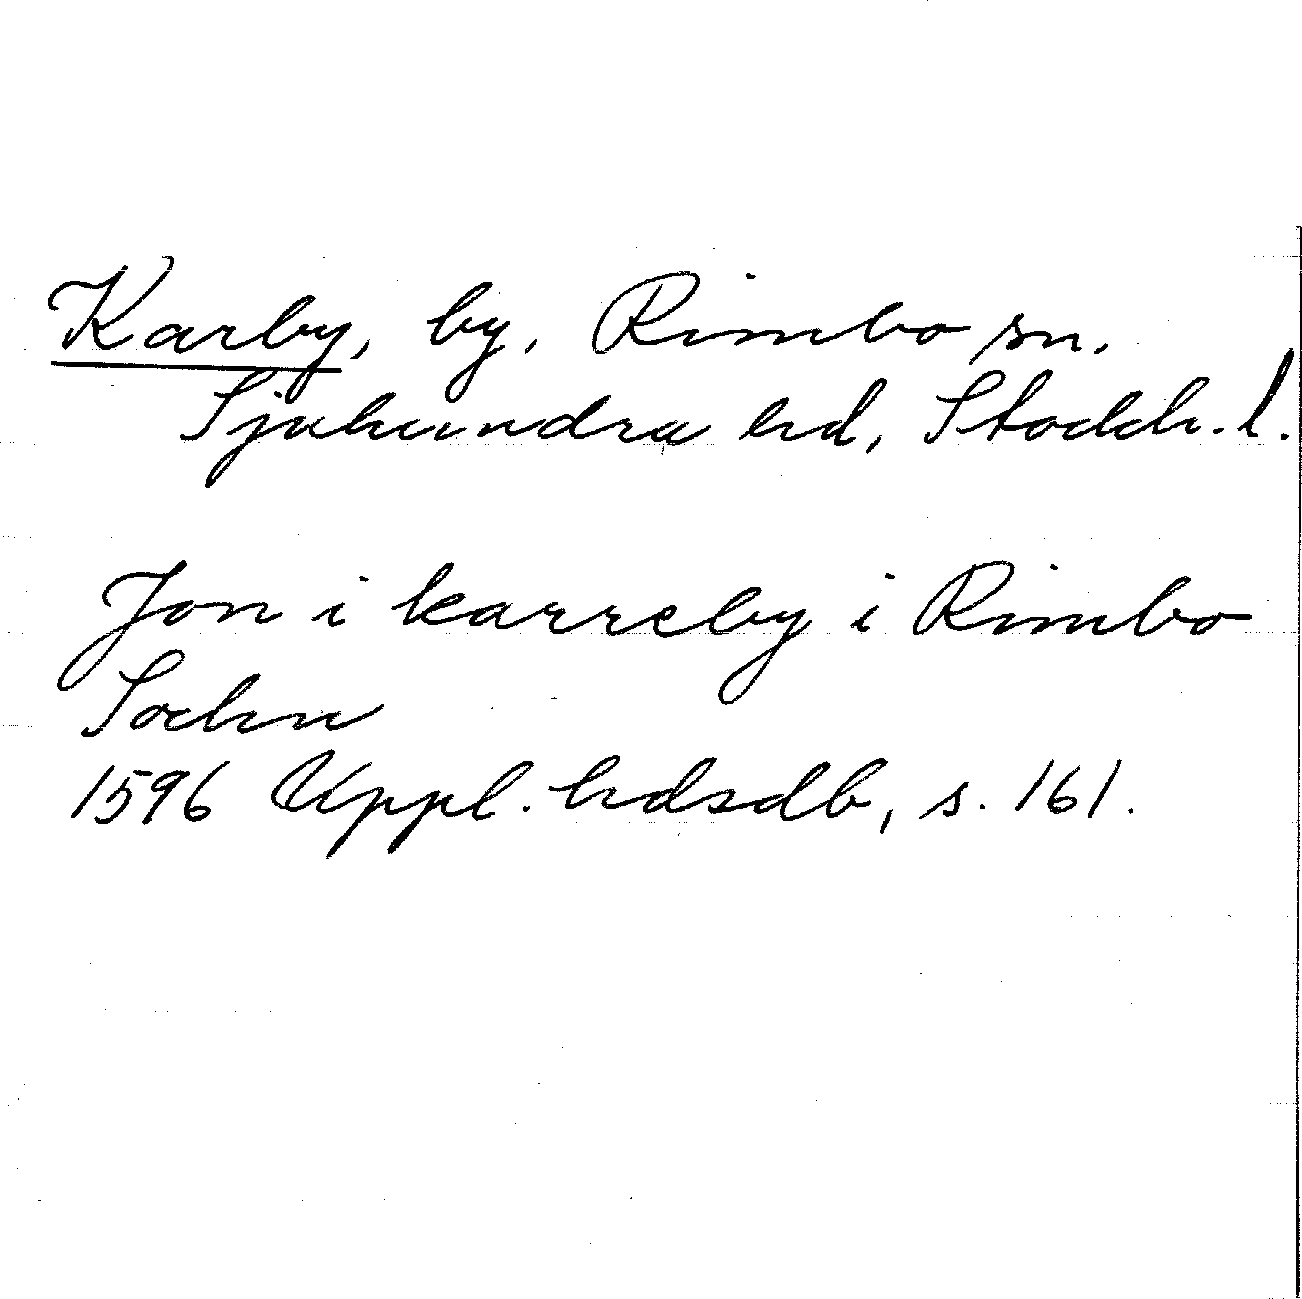 Karby, by, Rimbo sn.
Sjuhundra hd, Stockh. l.
Jon i karreby i Rimbo
Sochn
1596 Uppl. hdsdb, s. 161.